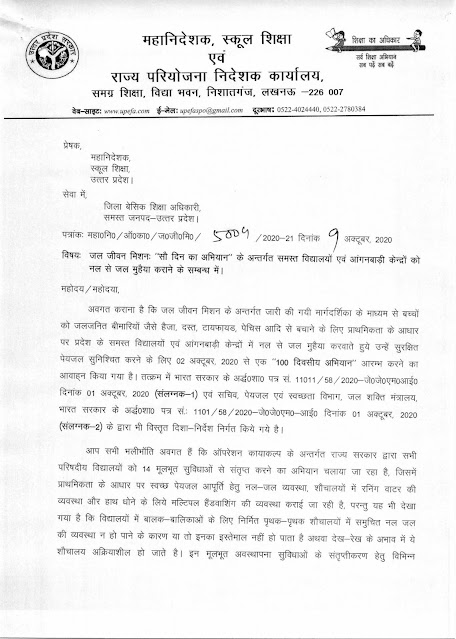 उत्तर प्रदेश सरकार
महानिदेशक, स्कूल शिक्षा
एवं
राज्य परियोजना निदेशक कार्यालय,
समग्र शिक्षा, विद्या भवन, निशातगंज, लखनऊ –226 007
शिक्षा का अधिकार
सर्व शिक्षा अभियान
सब पढ़ें सब बढ़ें
वेब–साइटः www.upefa.com ई–मेलः upefaspo@gmail.com दूरभाषः 0522-4024440, 0522-2780384
प्रेषक,
महानिदेशक,
स्कूल शिक्षा,
उत्तर प्रदेश।
सेवा में,
जिला बेसिक शिक्षा अधिकारी,
समस्त जनपद–उत्तर प्रदेश।
पत्रांकः महा0नि0/ऑ0का0/ज0जी0मि0/ 5004 /2020-21 दिनांक 9 अक्टूबर, 2020
विषयः जल जीवन मिशनः "सौ दिन का अभियान" के अन्तर्गत समस्त विद्यालयों एवं आंगनबाड़ी केन्द्रों को
नल से जल मुहैया कराने के सम्बन्ध में।
महोदय/महोदया,
अवगत कराना है कि जल जीवन मिशन के अन्तर्गत जारी की गयी मार्गदर्शिका के माध्यम से बच्चों
को जलजनित बीमारियों जैसे हैजा, दस्त, टायफायड, पेचिस आदि से बचाने के लिए प्राथमिकता के आधार
पर प्रदेश के समस्त विद्यालयों एवं आंगनबाड़ी केन्द्रों में नल से जल मुहैया करवाते हुये उन्हें सुरक्षित
पेयजल सुनिश्चित करने के लिए 02 अक्टूबर, 2020 से एक "100 दिवसीय अभियान" आरम्भ करने का
आवाहन किया गया है। तत्क्रम में भारत सरकार के अर्द्ध0शा0 पत्र सं. 11011/58/2020-जे0जे0एम0आई0
दिनांक 01 अक्टूबर, 2020 (संलग्नक–1) एवं सचिव, पेयजल एवं स्वच्छता विभाग, जल शक्ति मंत्रालय,
भारत सरकार के अर्द्ध0शा0 पत्र सं.: 1101/58/2020-जे0जे0एम–आई0 दिनांक 01 अक्टूबर, 2020
(संलग्नक–2) के द्वारा भी विस्तृत दिशा–निर्देश निर्गत किये गये है।
आप सभी भलीभाँति अवगत हैं कि ऑपरेशन कायाकल्प के अन्तर्गत राज्य सरकार द्वारा सभी
परिषदीय विद्यालयों को 14 मूलभूत सुविधाओं से संतृप्त करने का अभियान चलाया जा रहा है, जिसमें
प्राथमिकता के आधार पर स्वच्छ पेयजल आपूर्ति हेतु नल–जल व्यवस्था, शौचालयों में रनिंग वाटर की
व्यवस्था और हाथ धोने के लिये मल्टिपल हैंडवाशिंग की व्यवस्था कराई जा रही है, परन्तु यह भी देखा
गया है कि विद्यालयों में बालक–बालिकाओं के लिए निर्मित पृथक–पृथक शौचालयों में समुचित नल जल
की व्यवस्था न हो पाने के कारण या तो इनका इस्तेमाल नहीं हो पाता है अथवा देख–रेख के अभाव में ये
शौचालय अक्रियाशील हो जाते है। इन मूलभूत अवस्थापना सुविधाओं के संतृप्तीकरण हेतु विभिन्न